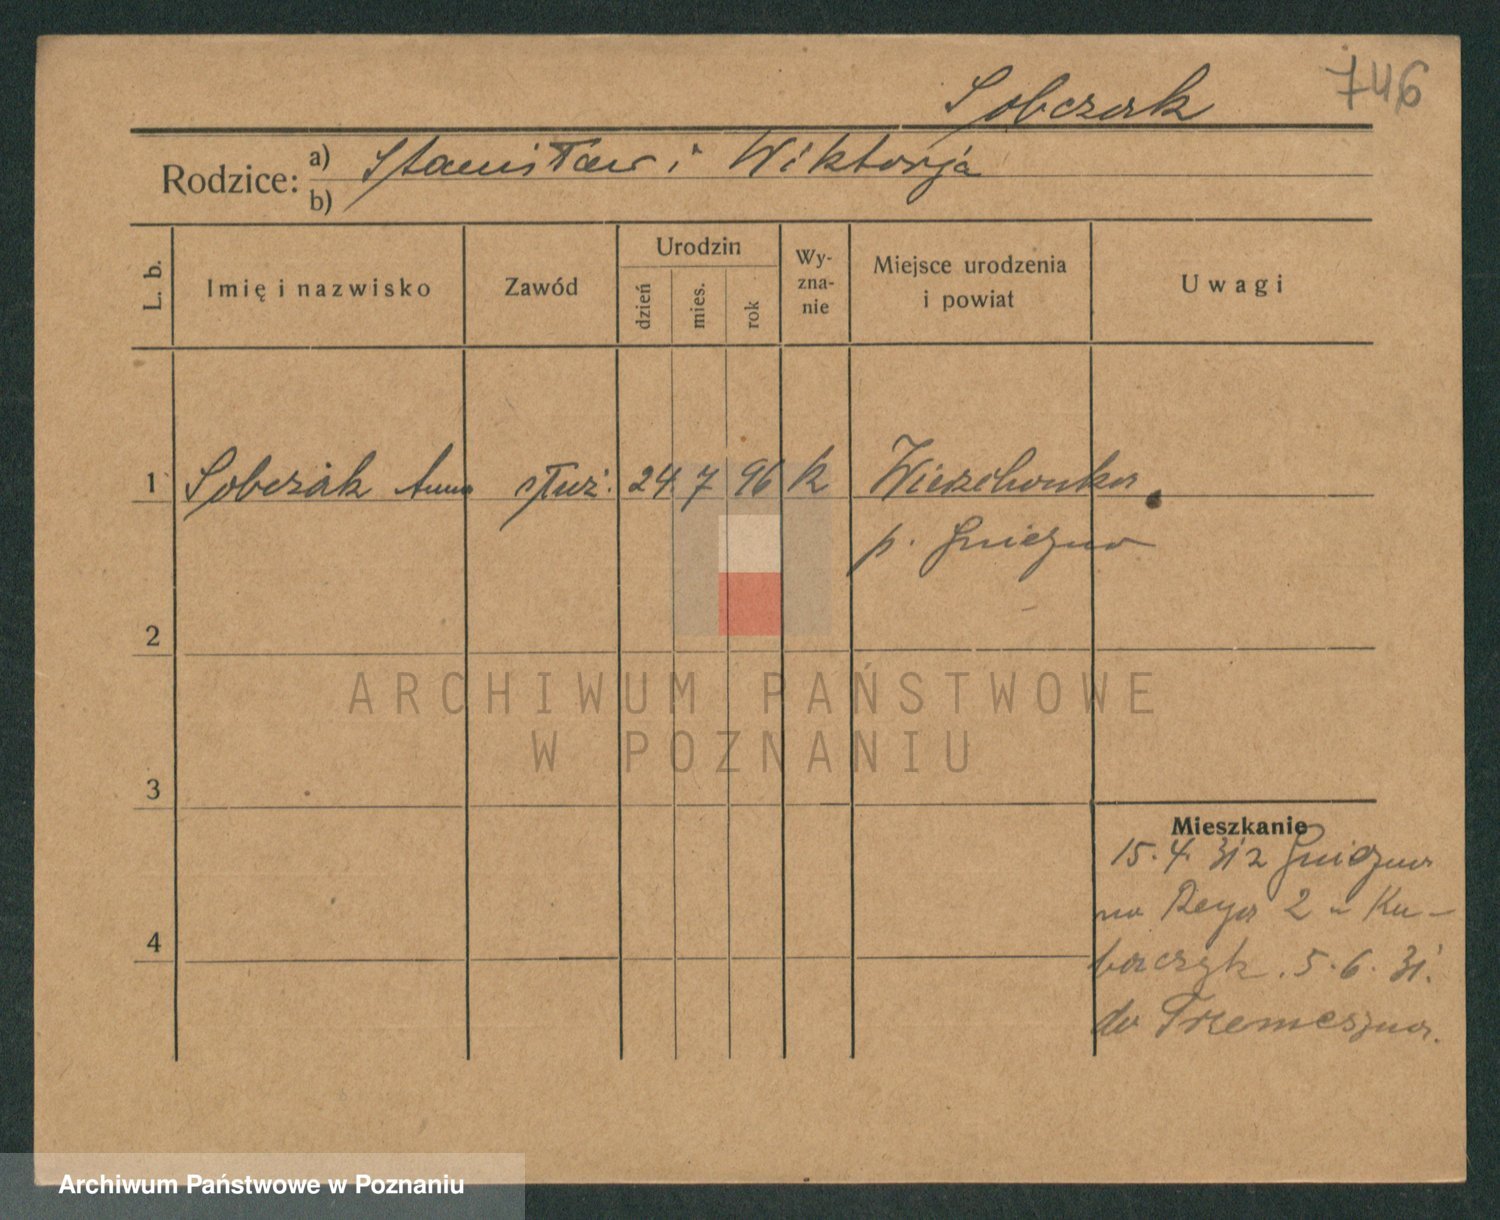 746
Sobczak
Rodzice: a) Stanisław i Wiktorja
b)
L. b. Imię i nazwisko Zawód Urodzin dzień mies. rok Wyznanie Miejsce urodzenia i powiat Uwagi
1 Sobczak Anna służ. 24 7 96 k Wierzchowka
p. Gniezno
2
ARCHIWUM PAŃSTWOWE
W POZNANIU
3
Mieszkanie
15.4.31 z Gniezna
na Reya 2 u Ku-
baczyk. 5.6.31.
4
do Trzemeszna.
Archiwum Państwowe w Poznaniu